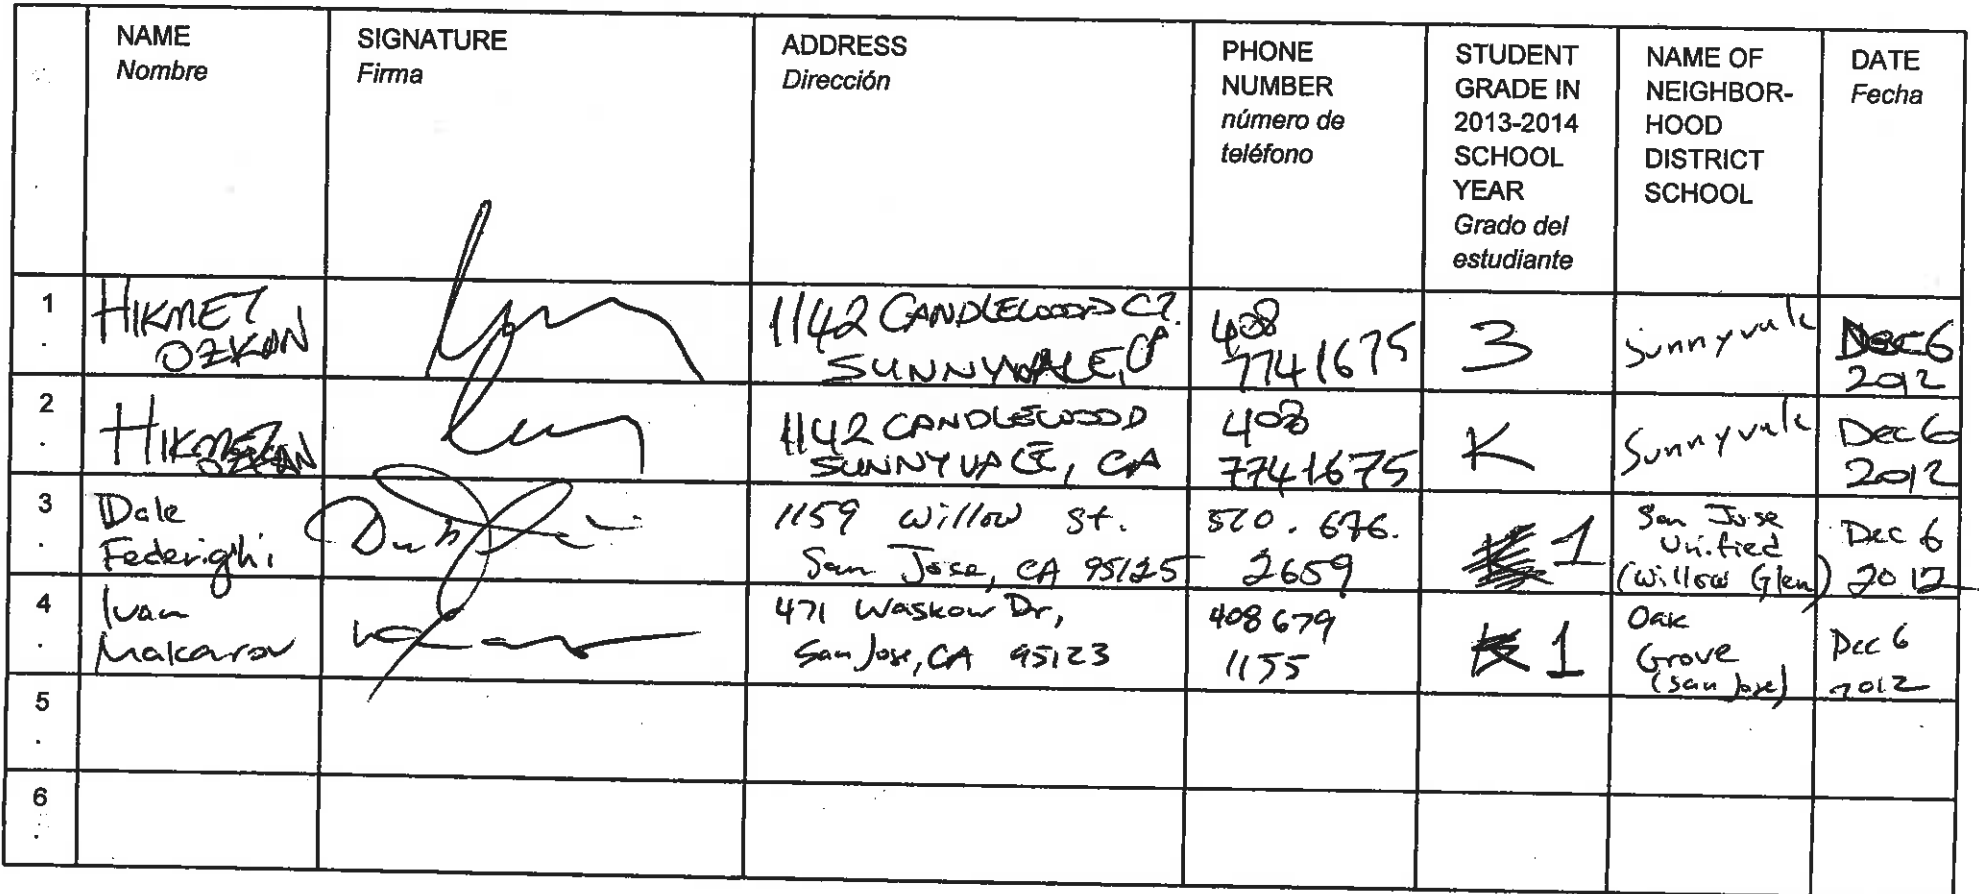 NAME
Nombre
SIGNATURE
Firma
ADDRESS
Dirección
PHONE
NUMBER
número de
teléfono
STUDENT
GRADE IN
2013-2014
SCHOOL
YEAR
Grado del
estudiante
NAME OF
NEIGHBOR-
HOOD
DISTRICT
SCHOOL
DATE
Fecha
1
.
HIKMET
OZKAN
1142 CANDLEWOOD CT.
SUNNYVALE, CA
408
7741675
3
Sunnyvale
Dec 6
2012
2
.
HIKMET
OZKAN
1142 CANDLEWOOD
SUNNYVALE, CA
408
7741675
K
Sunnyvale
Dec 6
2012
3
.
Dale
Federighi
1159 Willow St.
San Jose, CA 95125
510. 676.
2659
1
San Jose
Unified
(Willow Glen)
Dec 6
2012
4
.
Ivan
Makarov
471 Waskow Dr,
San Jose, CA 95123
408 679
1155
K 1
Oak
Grove
(San Jose)
Dec 6
2012
5
.
6
.